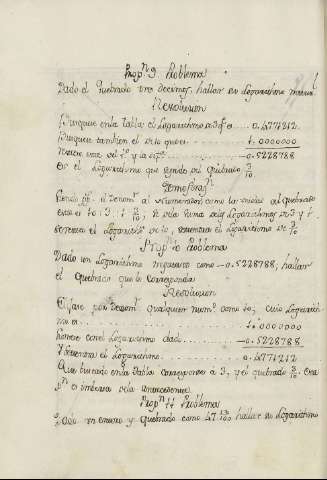 Propn. 9. Problema
Dado el Quebrado tres decimos, hallar su Logarithmo
Resolucion
Busquese en la Tabla el Logarithmo de 3 q. es .... 0.4771212
Busquese tambien el de 10 que es .... 1.0000000
.... -0.5228788
es el Logarithmo que del quebrado 3/10
Demostrasn.
Siendo el Denomr. al Numerador como la unidad al Quebrado
esto es 10: 3: 1: 3/10, si de la suma de los Logarithmos de 3 y 1
se resta el Logarithmo de 10, restara el Logarithmo de 3/10
Propn. 10 Problema
Dado un Logarithmo negativo como -0.5228788, hallar
el Quebrado que le corresponda
Resolucion
por Denomr. qualquier numo. como 10; cuio Logarithmo
es .... 1.0000000
con el Logarithmo dado .... -0.5228788
el Logarithmo .... 0.4771212
Que buscado en la Tabla corresponde a 3, y el quebrado 3/10. Esta
pn. es de la antecedente.
Propn. 11 Problema
Dado un entero y Quebrado como hallar su Logarithmo